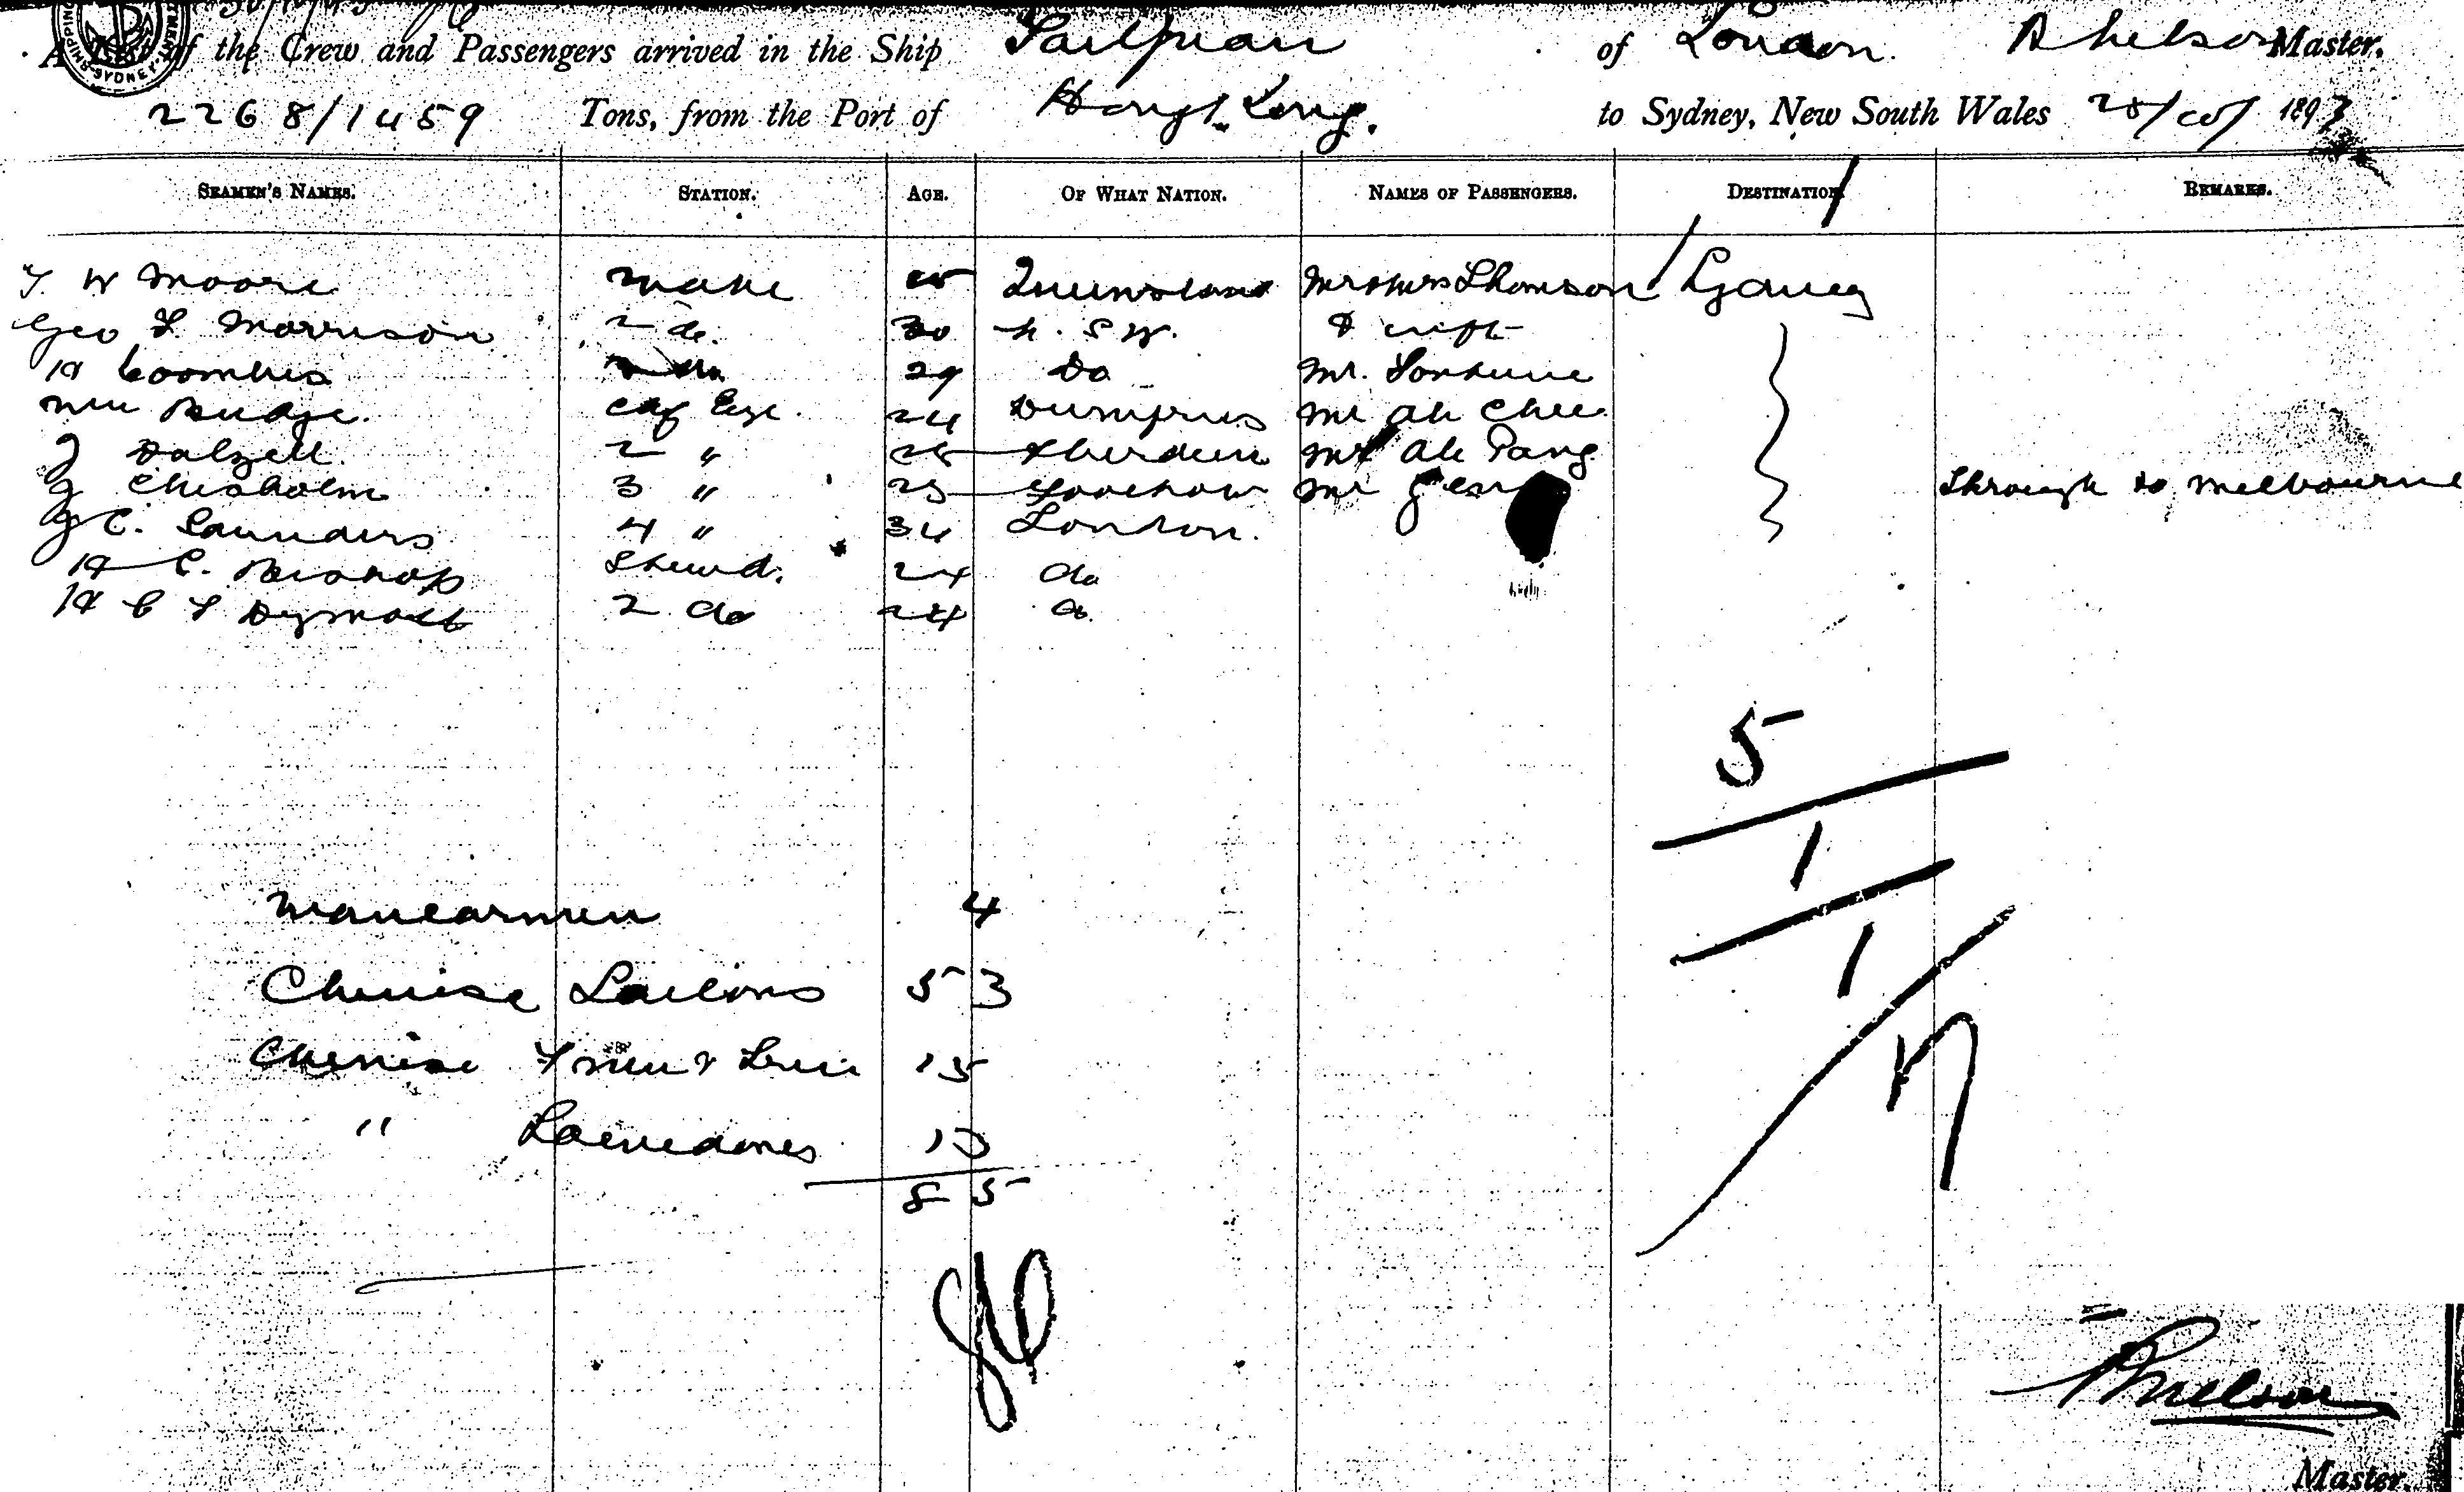 of the Crew and Passengers arrived in the Ship Taiyuan of London. R Nelson Master,
2268/1459 Tons, from the Port of Hong Kong. to Sydney, New South Wales 1893
SEAMEN'S NAMES. STATION. AGE. OF WHAT NATION. NAMES OF PASSENGERS. DESTINATION. REMARKS.
W Moore mate Queensland Mr & Mrs Thomson Sydney
Geo F Morrison 2 do. 30 N. S. W.
H Coombes 29 Do Mr.
Wm Budge. Chf Eng. 24 Dumfries Mr Ah Chee
J Dalzell 2 " 28 Aberdeen Mr Ah Pang
J Chisholm 3 " 25 Foochow Mr through to Melbourne
J C. Saunders 4 " 34 London.
H C. Bishop Stewd. 24 do
H C F Dymott 2 do 24 do
5
1
1
7
4
Chinese Sailors 53
Chinese 15
" 13
85
R Nelson
Master.